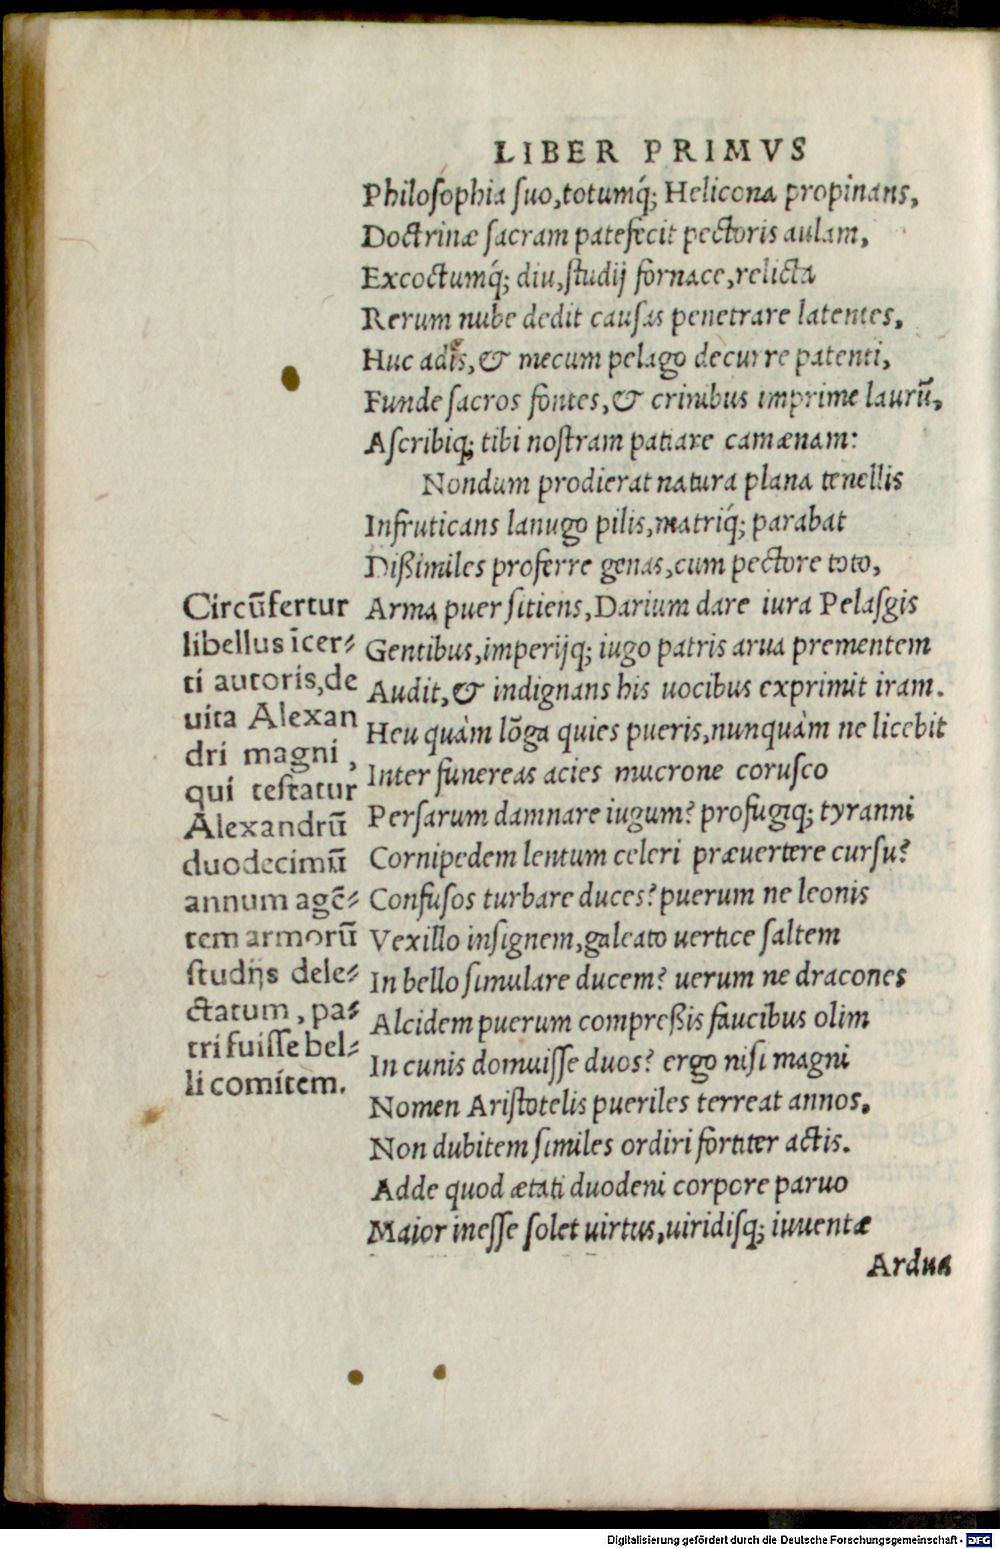 LIBER PRIMVS
Philosophia suo, totumq́; Helicona propinans,
Doctrinæ sacram patefecit pectoris aulam,
Excoctumq́; diu, studij fornace, relicta
Rerum nube dedit causas penetrare latentes,
Huc adis, & mecum pelago decurre patenti,
Funde sacros fontes, & crinibus imprime laurũ,
Ascribiq; tibi nostram patiare camænam:
Nondum prodierat natura plana tenellis
Infruticans lanugo pilis, matriq́; parabat
Dißimiles proferre genas, cum pectore toto,
Arma puer sitiens, Darium dare iura Pelasgis
Gentibus, imperijq; iugo patris arua prementem
Audit, & indignans his uocibus exprimit iram.
Heu quàm lõga quies pueris, nunquàm ne licebit
Inter funereas acies mucrone corusco
Persarum damnare iugum? profugiq; tyranni
Cornipedem lentum celeri præuertere cursu?
Confusos turbare duces? puerum ne leonis
Vexillo insignem, galeato uertice saltem
In bello simulare ducem? uerum ne dracones
Alcidem puerum compreßis faucibus olim
In cunis domuisse duos? ergo nisi magni
Nomen Aristotelis pueriles terreat annos,
Non dubitem similes ordiri fortiter actis.
Adde quod ætati duodeni corpore paruo
Maior inesse solet uirtus, uiridisq; iuuentæ
Ardua
Circũfertur
libellus ĩcer-
ti autoris, de
uita Alexan
dri magni,
qui testatur
Alexandrũ
duodecimũ
annum agẽ-
tem armorũ
studijs dele-
ctatum, pa-
tri fuisse bel-
li comitem.
Digitalisierung gefördert durch die Deutsche Forschungsgemeinschaft - DFG